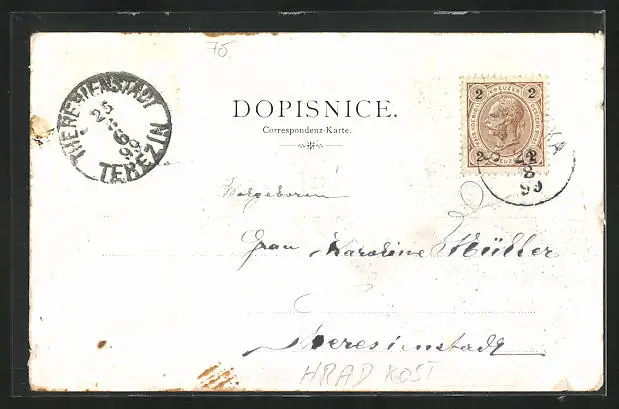 75
THERESIENSTADT
25
8
6
99
TEREZIN
DOPISNICE.
Correspondenz-Karte.
2 KREUZER 2
2 KREUZER 2
KA
8
99
Wolgeboren
Frau Karoline Müller
Theresienstadt
HRAD KOST